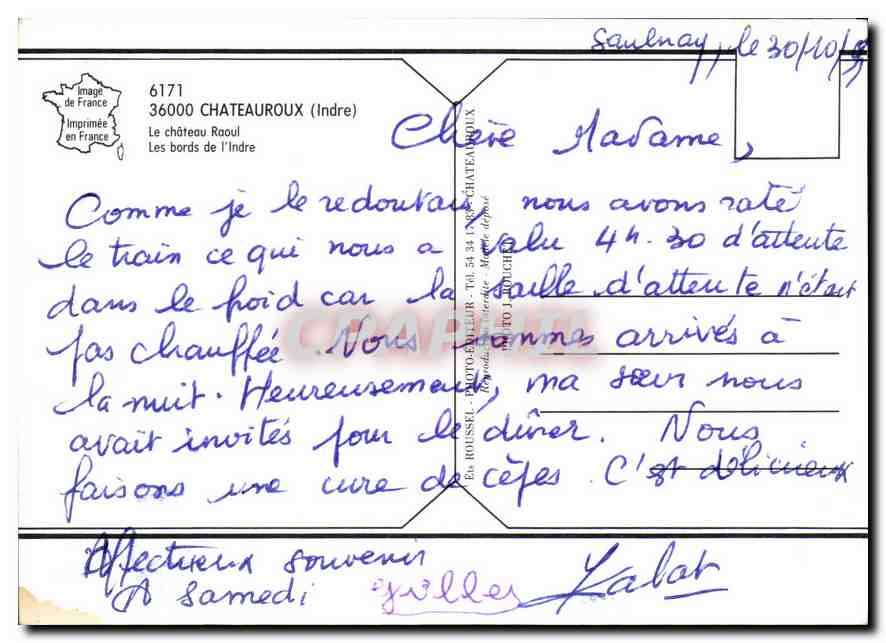 Saulnay, le 30/10/
Image
de France
Imprimée
en France
6171
36000 CHATEAUROUX (Indre)
Le château Raoul
Les bords de l'Indre
Chère Madame,
Comme je le redoutais, nous avons raté
le train ce qui nous a valu 4h.30 d'attente
dans le froid car la salle d'attente n'était
pas chauffée. Nous sommes arrivés à
la nuit. Heureusement, ma sœur nous
avait invités pour le dîner. Nous
faisons une cure de cèpes. C'est délicieux
Affectueux souvenir
A samedi
Gilles
Ets ROUSSEL - PHOTO-EDITEUR - Tél. 54 34 17 83 - CHATEAUROUX
Reproduction interdite - Modèle déposé
PHOTO J. BOUCHET
CPAPHIL